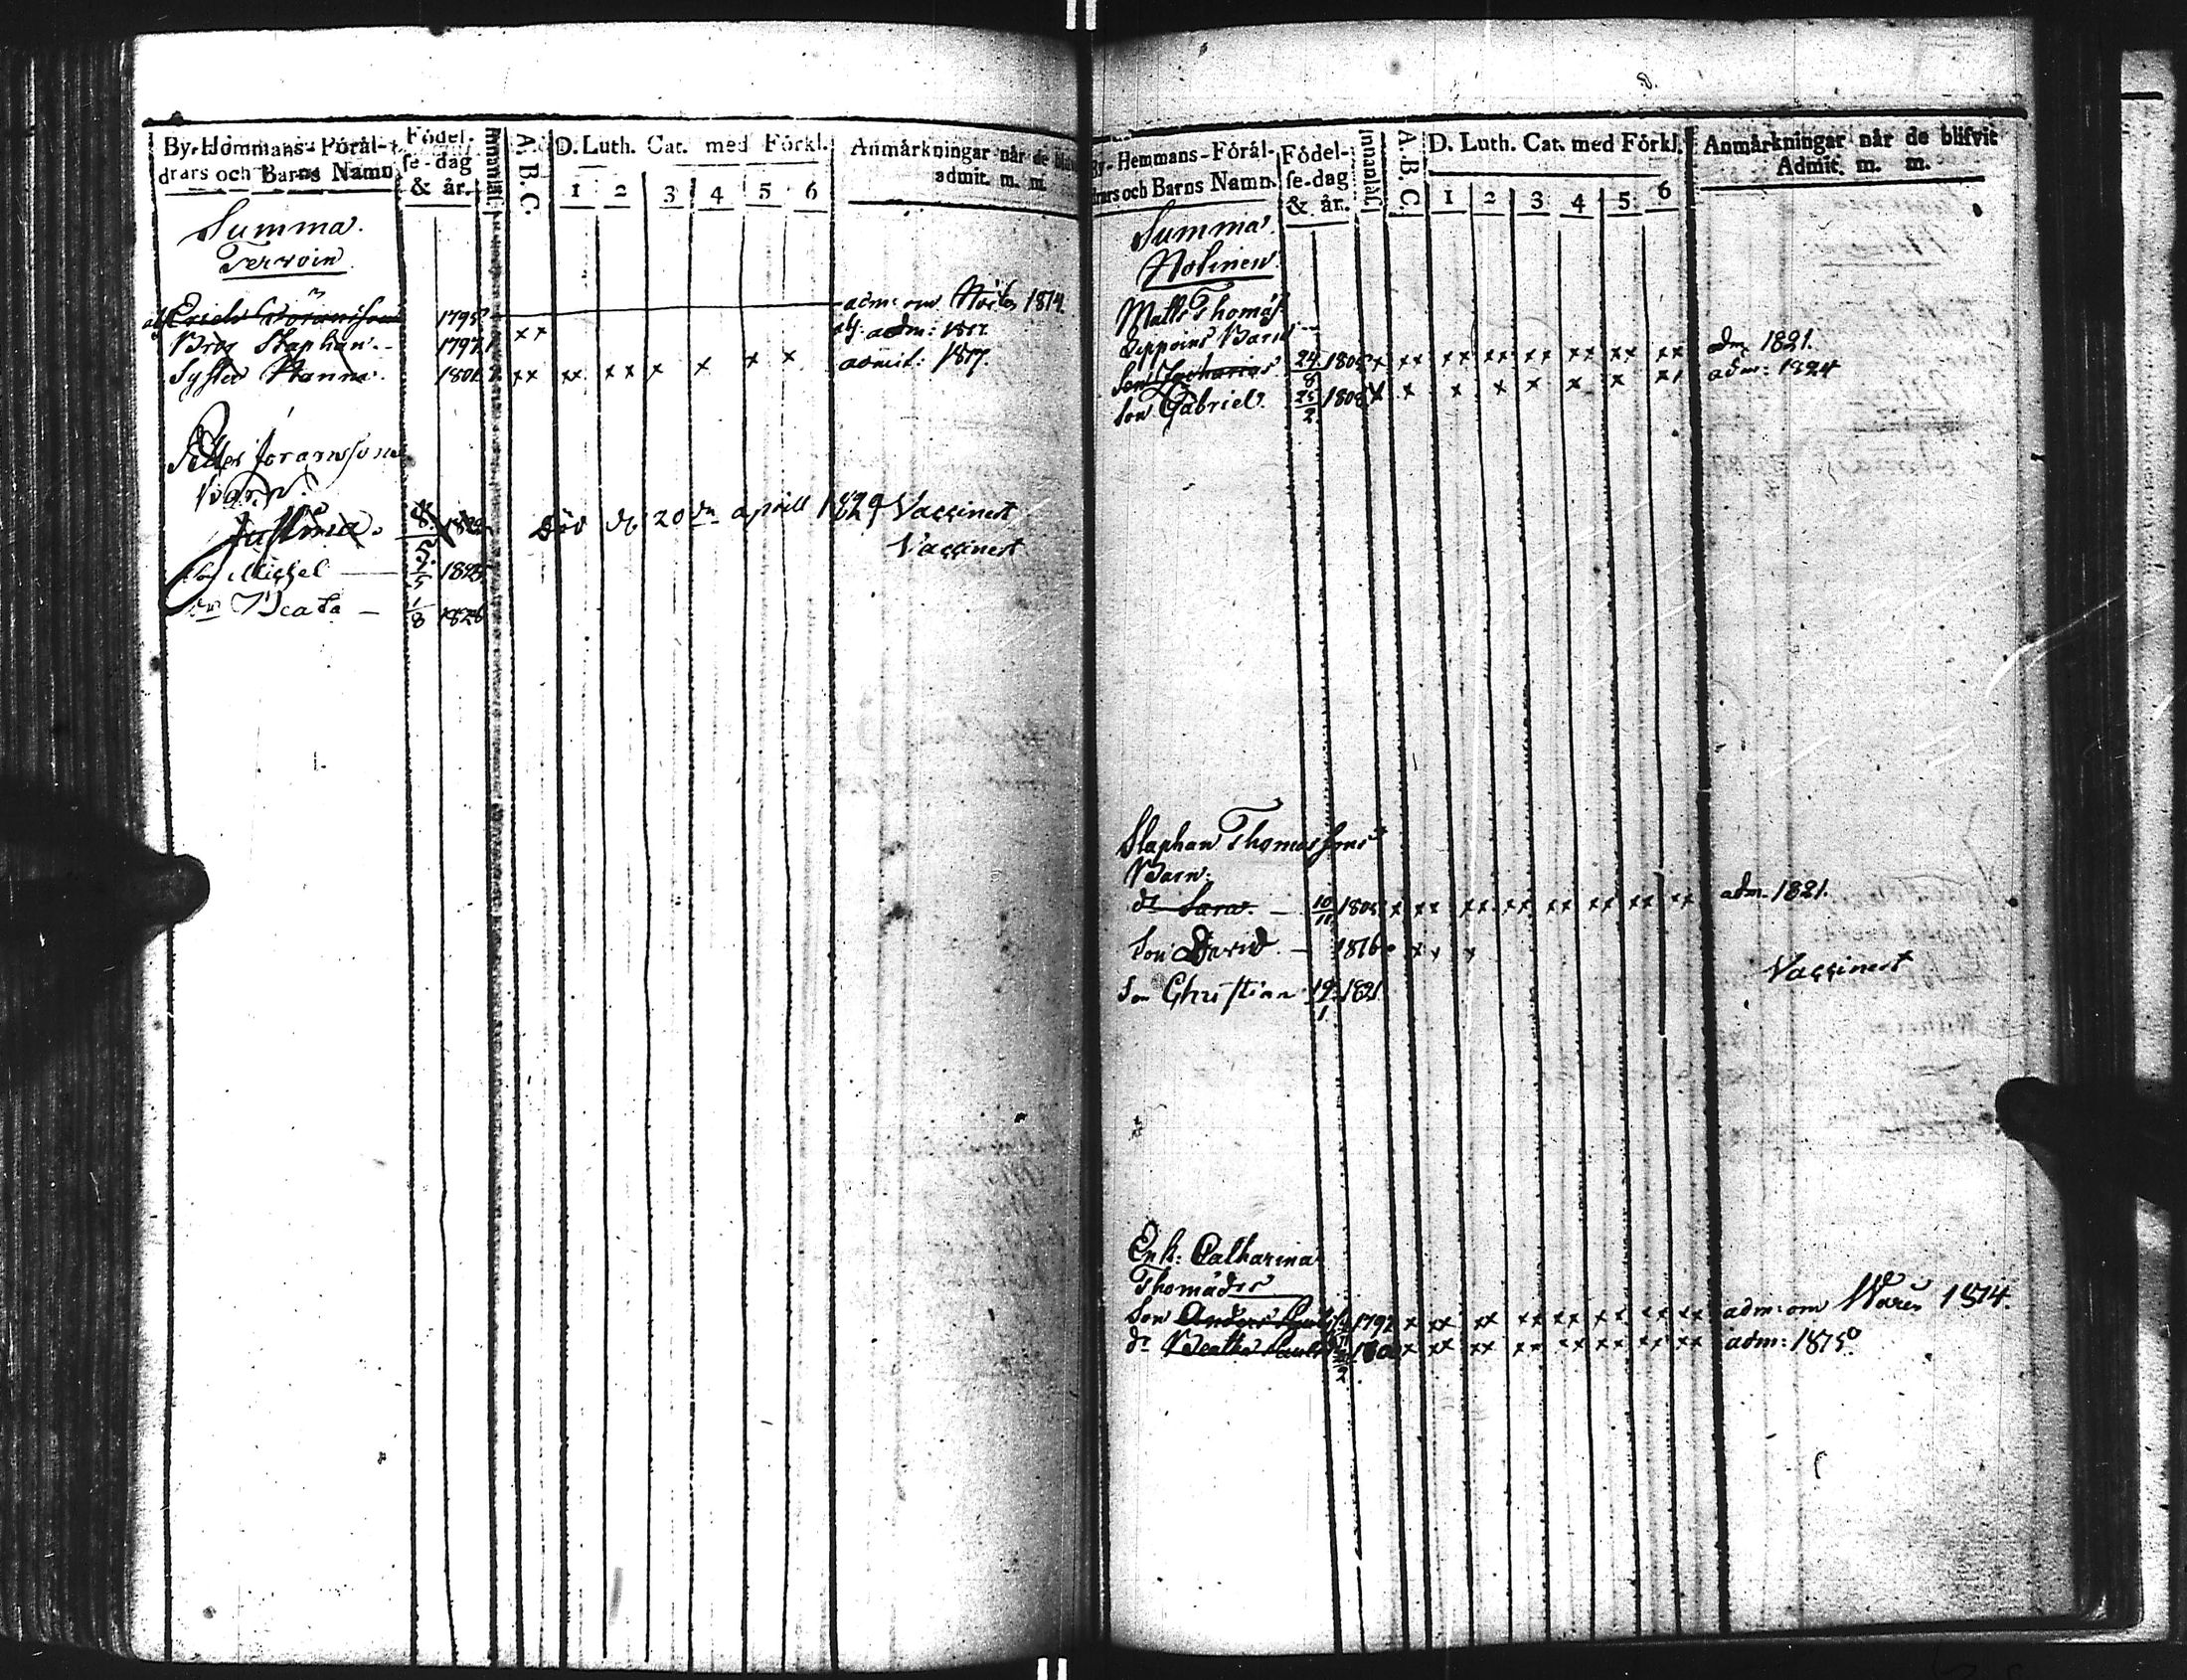 By-Hemmans-Förål-
drars och Barns Namn
Födel-
se-dag
& år.
Innanläs.
A.B.C.
D. Luth. Cat. med Förkl.
1 2 3 4 5 6
Anmårkningar når de
admit. m. m.
Summa.
Tervoin
Erich Göransson 1795 adm: om 1814.
Bror Staphan 1797 xx afs. adm: 1817.
Syster Nanna. 1801 xx xx xx x x x x admit: 1817.
Petter Joranssons
Barn.
Justina. 8/5 182 död d. 20 dn aprill 1829 Vaccinert
Son Michel 5 1825 Vaccinert
dr Beata 1/8 1826
By-Hemmans-Förål-
drars och Barns Namn.
Födel-
se-dag
& år.
Innanläs.
A.B.C.
D. Luth. Cat. med Förkl.
1 2 3 4 5 6
Anmårkningar når de blifvit
Admit. m. m.
Summa
Nolinen
Matts Thomass.
Seppoins Barn
Son Zacharias 24/8 1805 x xx xx xx xx xx xx xx adm 1821.
Son Gabriel. 25/2 1808 x x x x x x x x adm: 1824
Staphan Thomassons
Barn:
dr Sara. 10/11 1805 x xx xx xx xx xx xx xx adm 1821.
Son David 1816 x x x
Son Christian 19/1 1821. Vaccinert
Enk: Catharina
Thomädr
Son Anders 1797 x xx xx xx xx xx xx xx adm: om Våren 1814.
dr Beatha x xx xx xx xx xx xx xx adm: 1815.